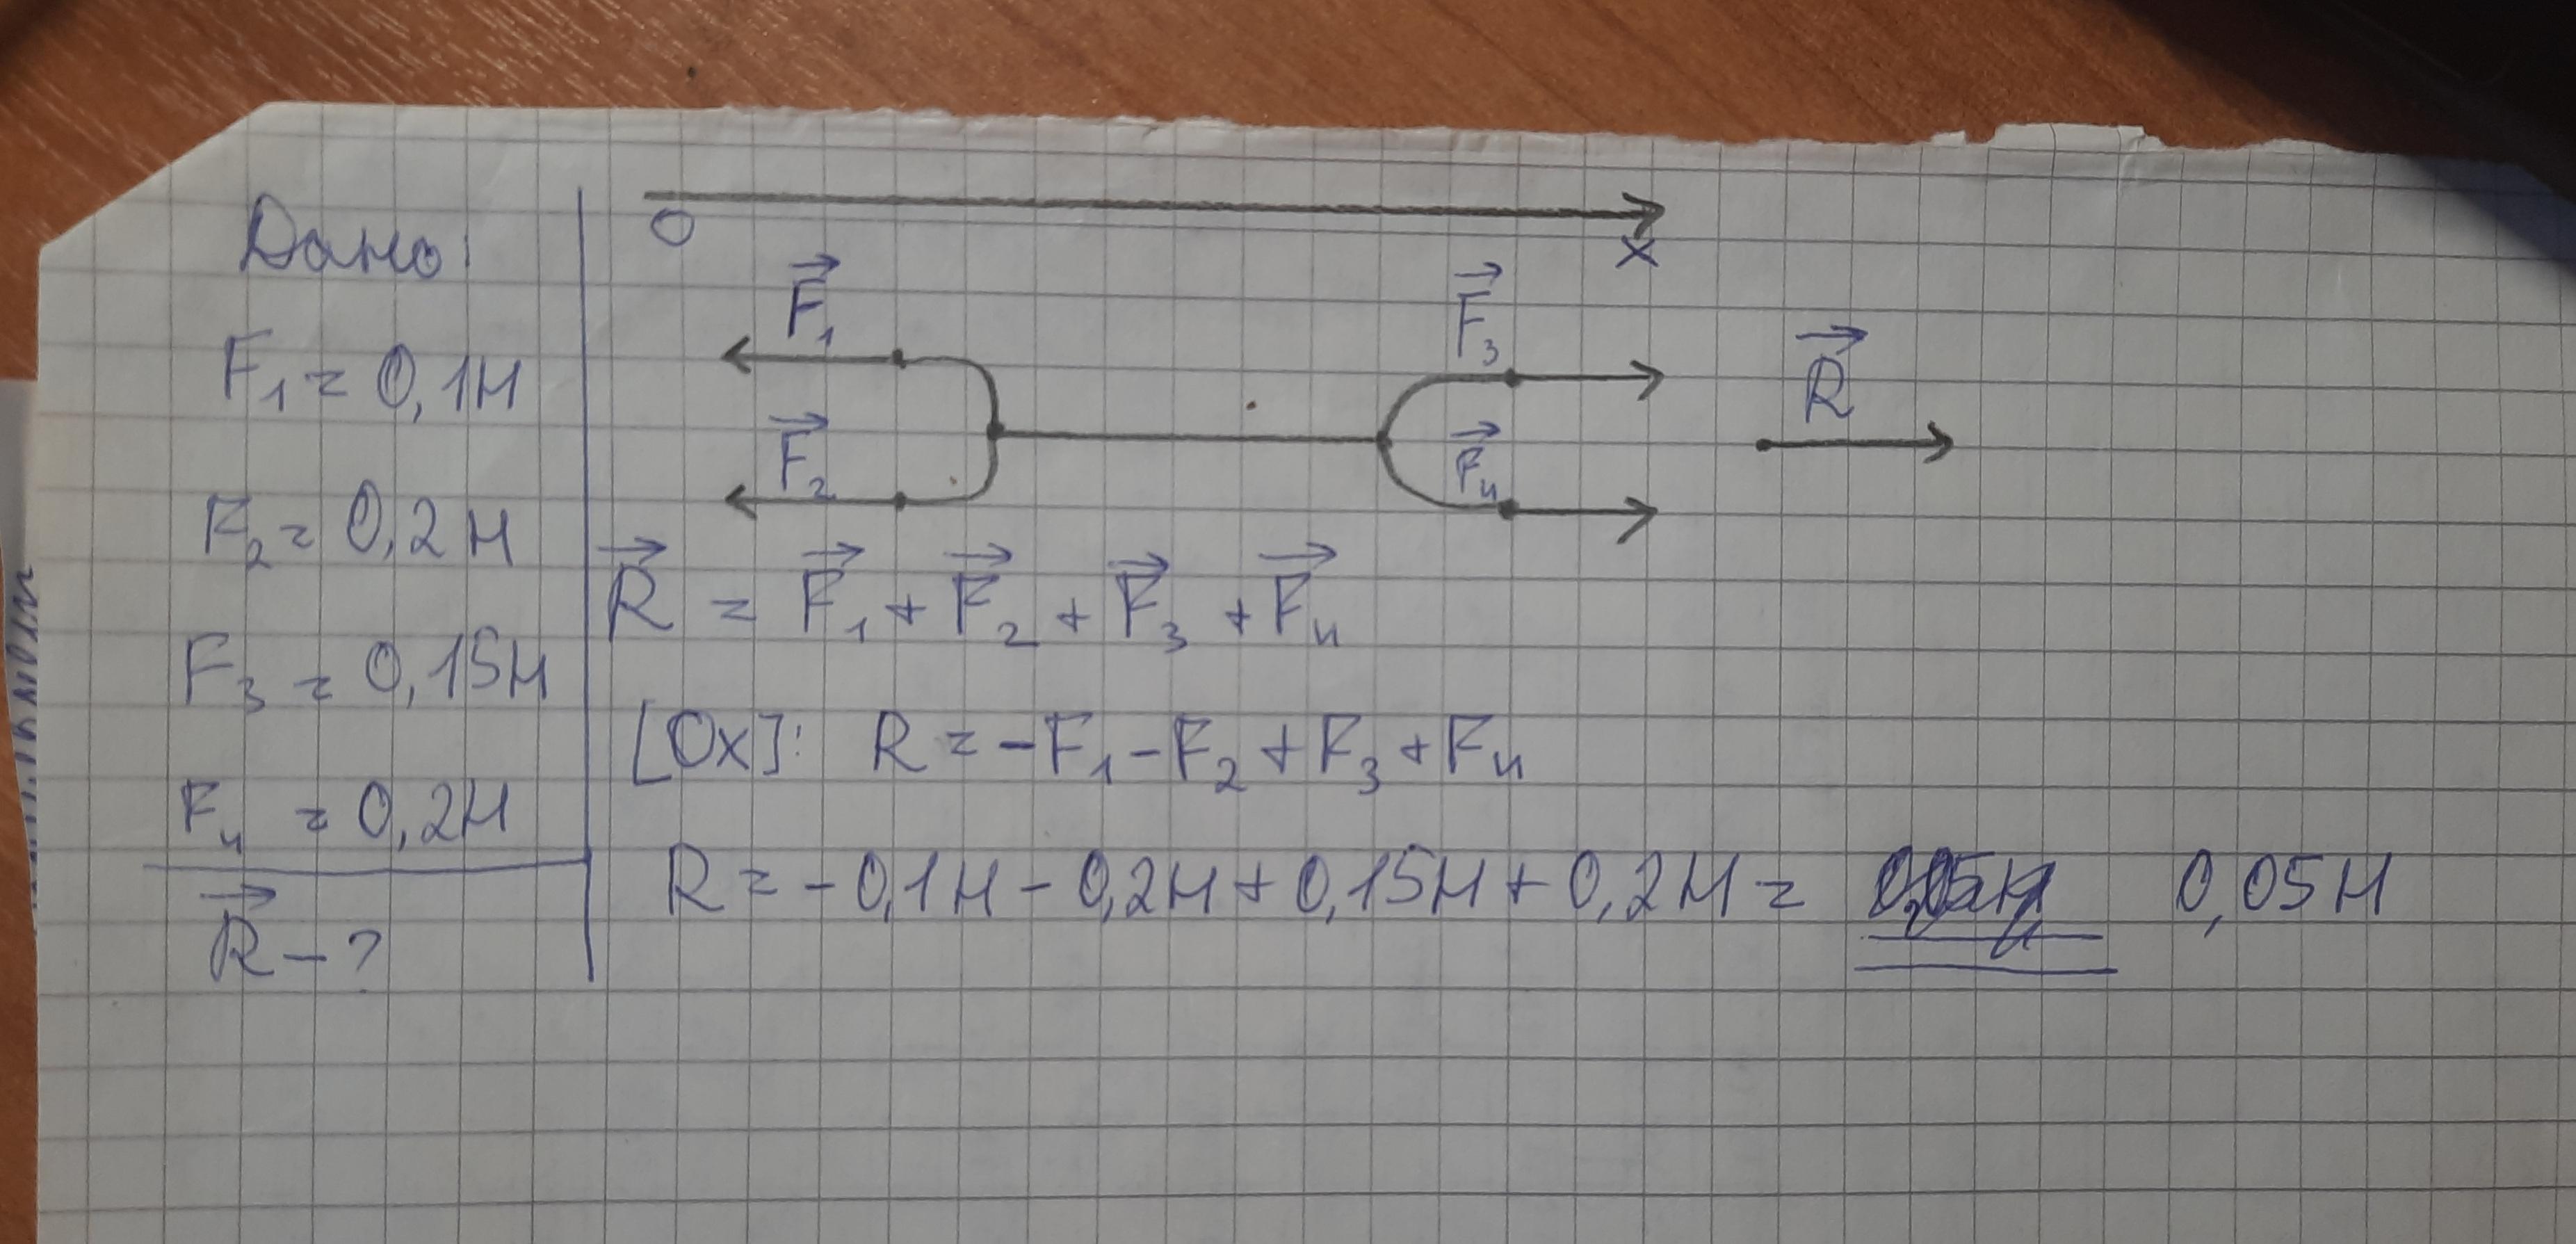 Дано:
F₁ = 0,1Н
F₂ = 0,2Н
F₃ = 0,15Н
F₄ = 0,2Н
R⃗ – ?
0
x
F⃗₁
F⃗₂
F⃗₃
F⃗₄
R⃗
R⃗ = F⃗₁ + F⃗₂ + F⃗₃ + F⃗₄
[Ox]: R = –F₁ – F₂ + F₃ + F₄
R = – 0,1Н – 0,2Н + 0,15Н + 0,2Н = 0,05Н